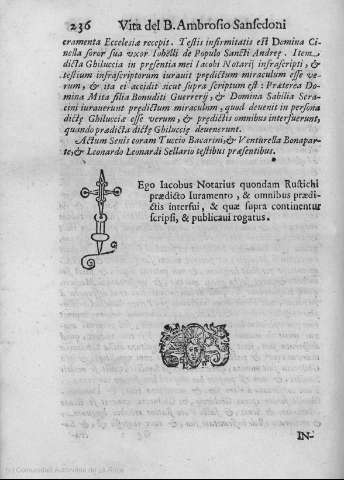 236 Vita del B. Ambrosio Sansedoni
cramenta Ecclesiæ recepit. Testis infirmitatis est Domina Ci-
nella soror sua vxor Iobelli de Populo Sancti Andreę. Item
dicta Ghiluccia in presentia mei Iacobi Notarij infrascripti, &
testium infrascriptorum iurauit prędictum miraculum esse ve-
rum, & ita ei accidit sicut supra scriptum est: Præterea Do-
mina Mita filia Bonuditi Guerrerij, & Domina Sabilia Sera-
cini iurauerunt prędictum miraculum, quod deuenit in persona
dictę Ghilucciæ esse verum, & prędictis omnibus interfuerunt,
quando prædicta dictę Ghiluccię deuenerunt.
Actum Senis coram Tuccio Bucarini, & Venturella Bonapar-
te, & Leonardo Leonardi Sellario testibus præsentibus.
Ego Iacobus Notarius quondam Rustichi
prædicto Iuramento, & omnibus prædi-
ctis interfui, & quæ supra continentur
scripsi, & publicaui rogatus.
IN-
(c) Comunidad Autónoma de La Rioja